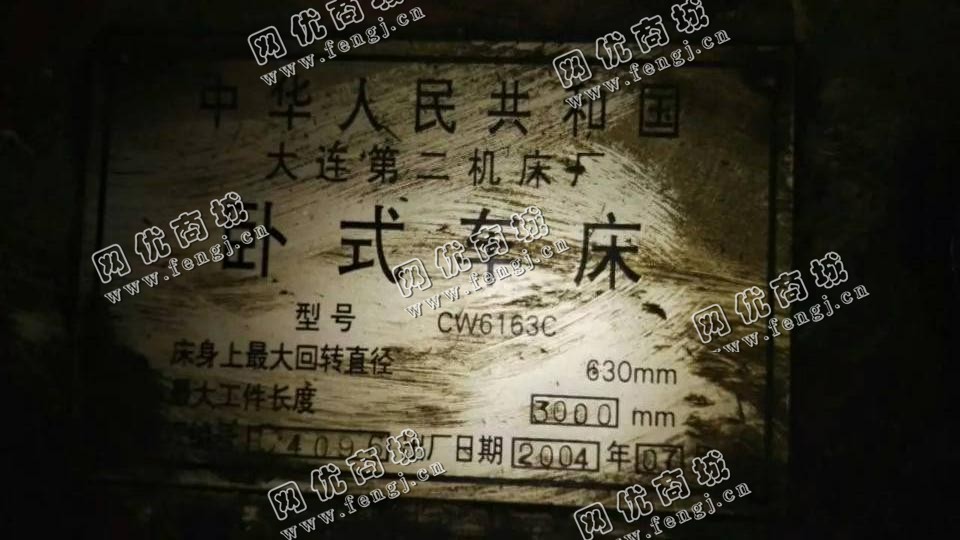 网优商城
www.fengj.cn
网优商城
www.fengj.cn
中华人民共和国
大连第二机床厂
网优商城
www.fengj.cn
卧式车床
网优商城
www.fengj.cn
网优商城
www.fengj.cn
型号 CW6163C
床身上最大回转直径 630mm
最大工件长度 3000 mm
4096 厂日期 2004 年 07
网优商城
www.fengj.cn
网优商城
www.fengj.cn